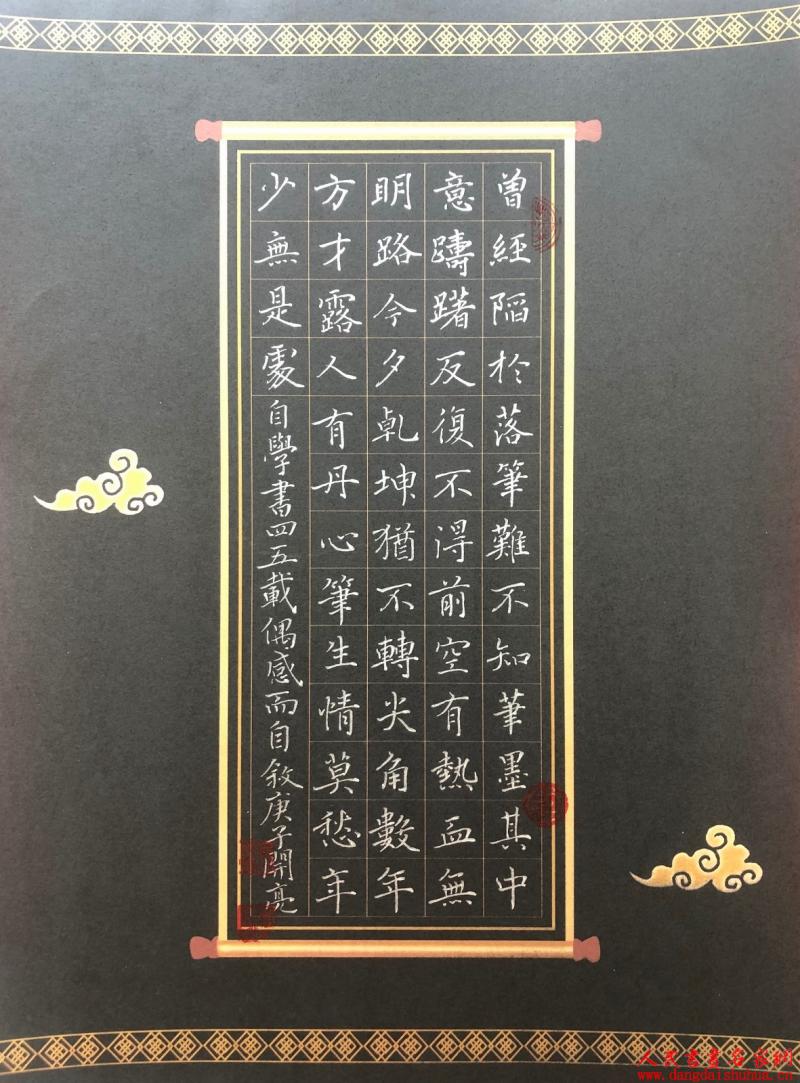 曾經陷於落筆難不知筆墨其中
意躊躇反復不得前空有熱血無
明路今夕乾坤猶不轉尖角數年
方才露人有丹心筆生情莫愁年
少無是處
自學書四五載偶感而自敘庚子開亮
www.dangdaishuhua.cn